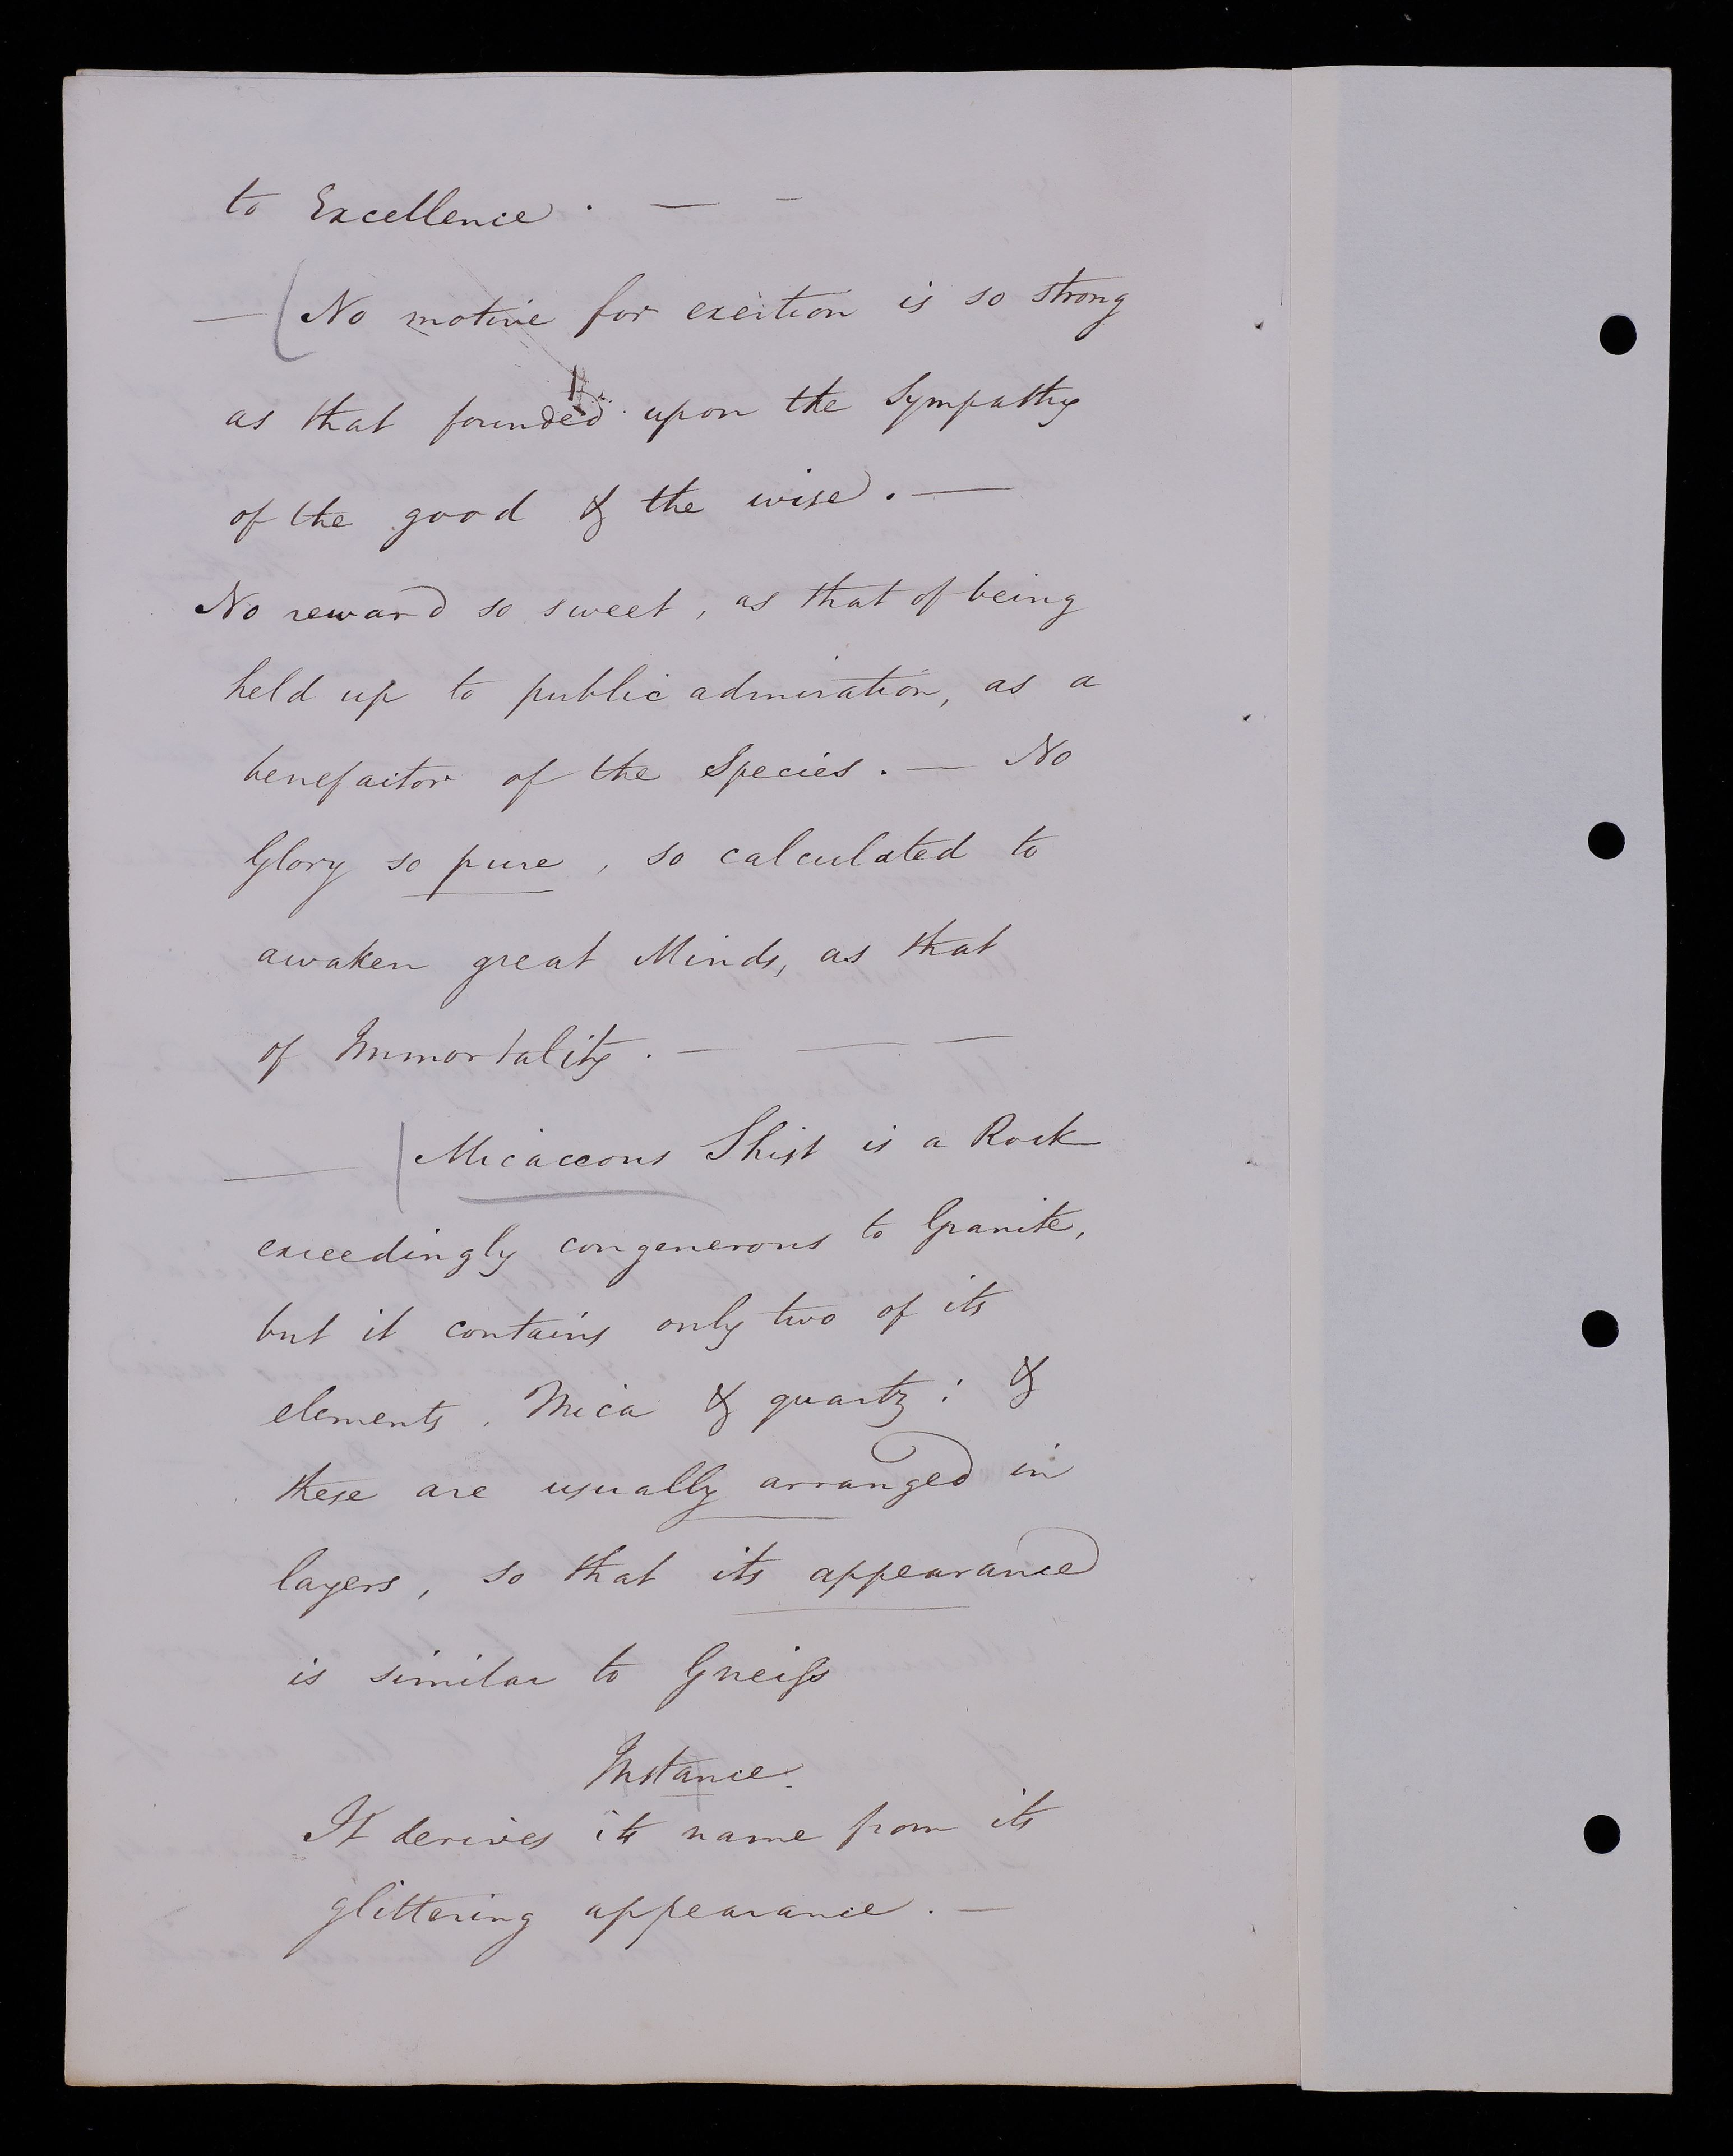 to Excellence. — –
— (No motive for exertion is so strong
as that founded upon the Sympathy
of the good & the wise. —
No reward so sweet, as that of being
held up to public admiration, as a
benefactor of the Species. — No
Glory so pure, so calculated to
awaken great Minds, as that
of Immortality. — — —
— | Micaceous Shist is a Rock
exceedingly congenerous to Granite,
but it contains only two of its
elements, Mica & quartz: &
these are usually arranged in
layers, so that its appearance
is similar to Gneiss
Instance.
It derives its name from its
glittering appearance. —